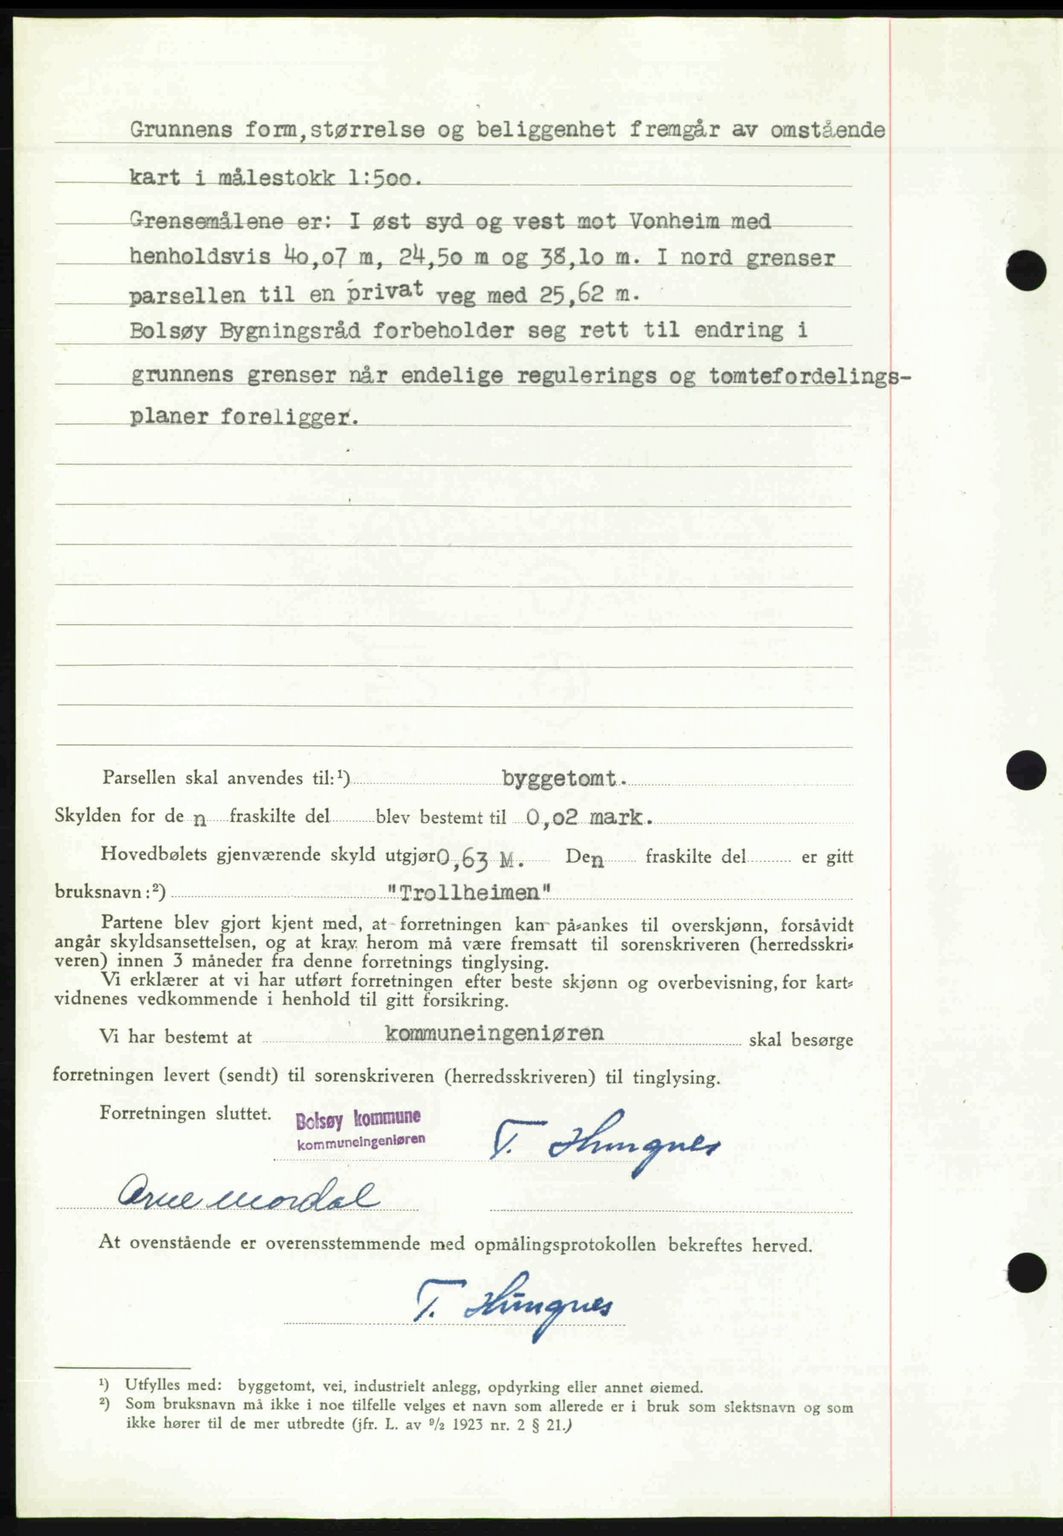 Grunnens form,størrelse og beliggenhet fremgår av omstående
kart i målestokk 1:500.
Grensemålene er: I øst syd og vest mot Vonheim med
henholdsvis 40,07 m, 24,50 m og 38,10 m. I nord grenser
parsellen til en privat veg med 25,62 m.
Bolsøy Bygningsråd forbeholder seg rett til endring i
grunnens grenser når endelige regulerings og tomtefordelings-
planer foreligger.
Parsellen skal anvendes til:¹) byggetomt.
Skylden for de n fraskilte del blev bestemt til 0,02 mark.
Hovedbølets gjenværende skyld utgjør 0,63 M. Den fraskilte del er gitt
bruksnavn:²) "Trollheimen"
Partene blev gjort kjent med, at forretningen kan på=ankes til overskjønn, forsåvidt
angår skyldsansettelsen, og at krav herom må være fremsatt til sorenskriveren (herredsskri=
veren) innen 3 måneder fra denne forretnings tinglysing.
Vi erklærer at vi har utført forretningen efter beste skjønn og overbevisning, for kart=
vidnenes vedkommende i henhold til gitt forsikring.
Vi har bestemt at kommuneingeniøren skal besørge
forretningen levert (sendt) til sorenskriveren (herredsskriveren) til tinglysing.
Forretningen sluttet. Bolsøy kommune
kommuneingeniøren T. Hungnes
Arne Mordal
At ovenstående er overensstemmende med opmålingsprotokollen bekreftes herved.
T. Hungnes
¹) Utfylles med: byggetomt, vei, industrielt anlegg, opdyrking eller annet øiemed.
²) Som bruksnavn må ikke i noe tilfelle velges et navn som allerede er i bruk som slektsnavn og som
ikke hører til de mer utbredte (jfr. L. av 9/2 1923 nr. 2 § 21.)